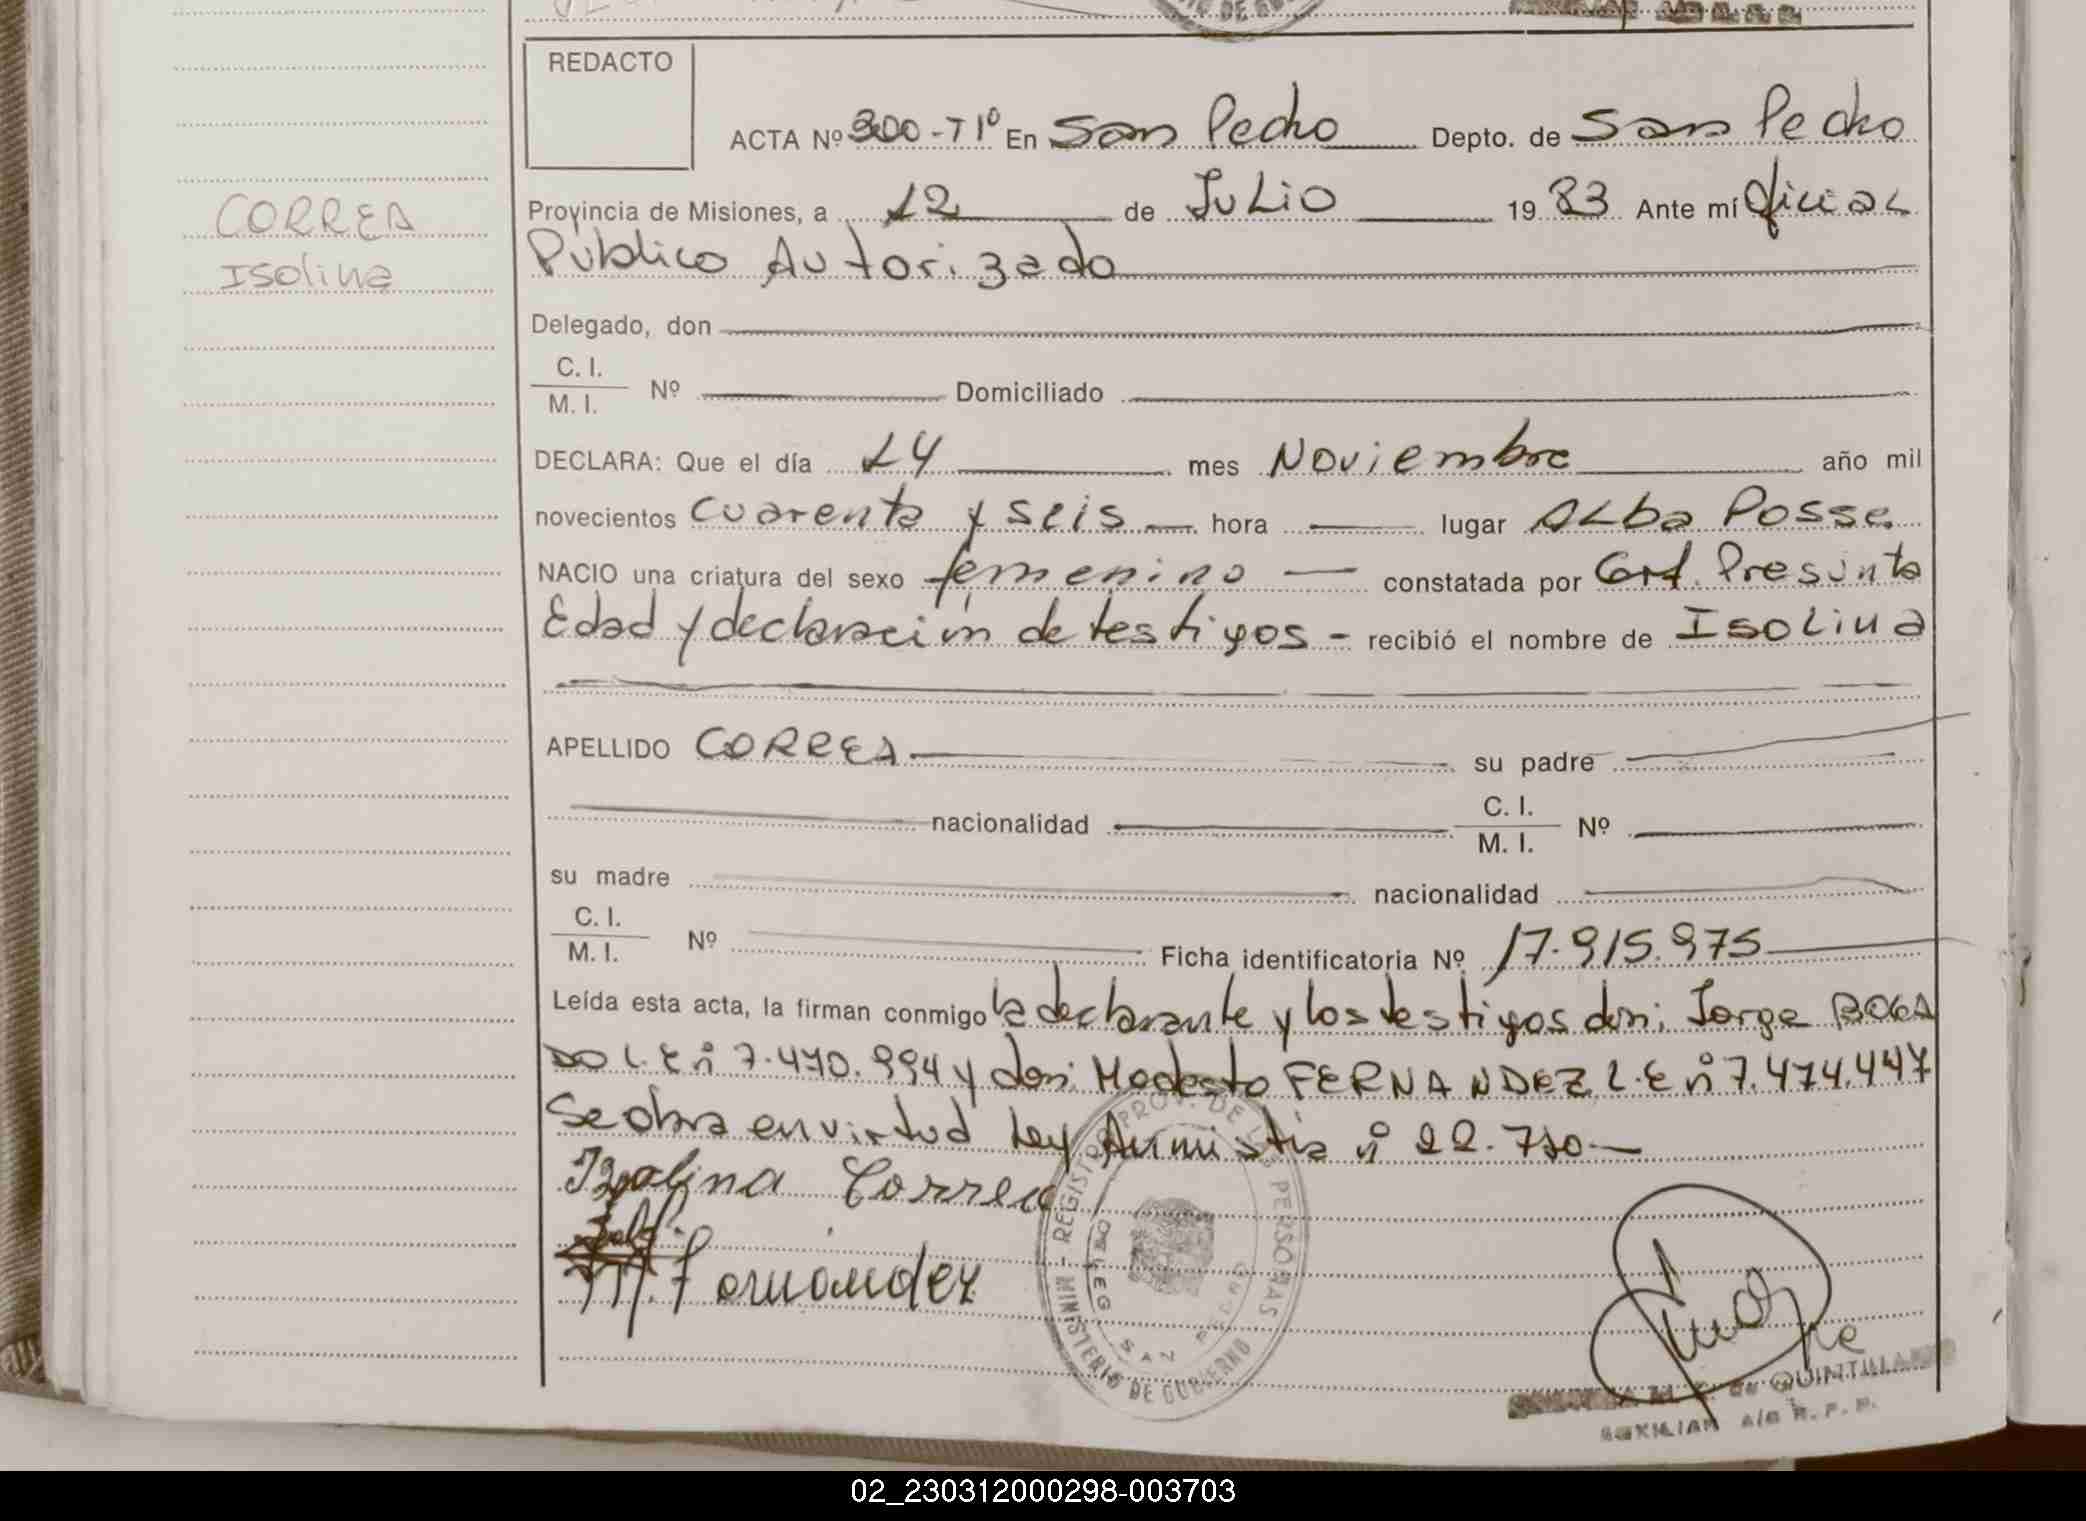 REDACTO
ACTA Nº 300-T1º En San Pedro Depto. de San Pedro
CORREA
Isolina
Provincia de Misiones, a 12 de Julio 1983 Ante mí Oficial
Público Autorizado
Delegado, don
C. I.
M. I. Nº Domiciliado
DECLARA: Que el día 14 mes Noviembre año mil
novecientos cuarenta y seis hora lugar Alba Posse
NACIO una criatura del sexo femenino constatada por Cert. Presunta
Edad y declaración de testigos - recibió el nombre de Isolina
APELLIDO CORREA su padre
nacionalidad C. I. M. I. Nº
su madre nacionalidad
C. I.
M. I. Nº Ficha identificatoria Nº 17.915.975
Leída esta acta, la firman conmigo la declarante y los testigos don: Jorge BOGA
DO L.E nº 7.470.994 y don: Modesto FERNANDEZ L.E nº 7.474.447
Se obra en virtud Ley Amnistia nº 22.710
Izolina Correa
M. Fernandez
MINISTERIO DE GOBIERNO - REGISTRO PROV. DE LAS PERSONAS
DELEG. SAN PEDRO
de QUINTILLAN
AUXILIAR A/C R. P. P.
02_230312000298-003703